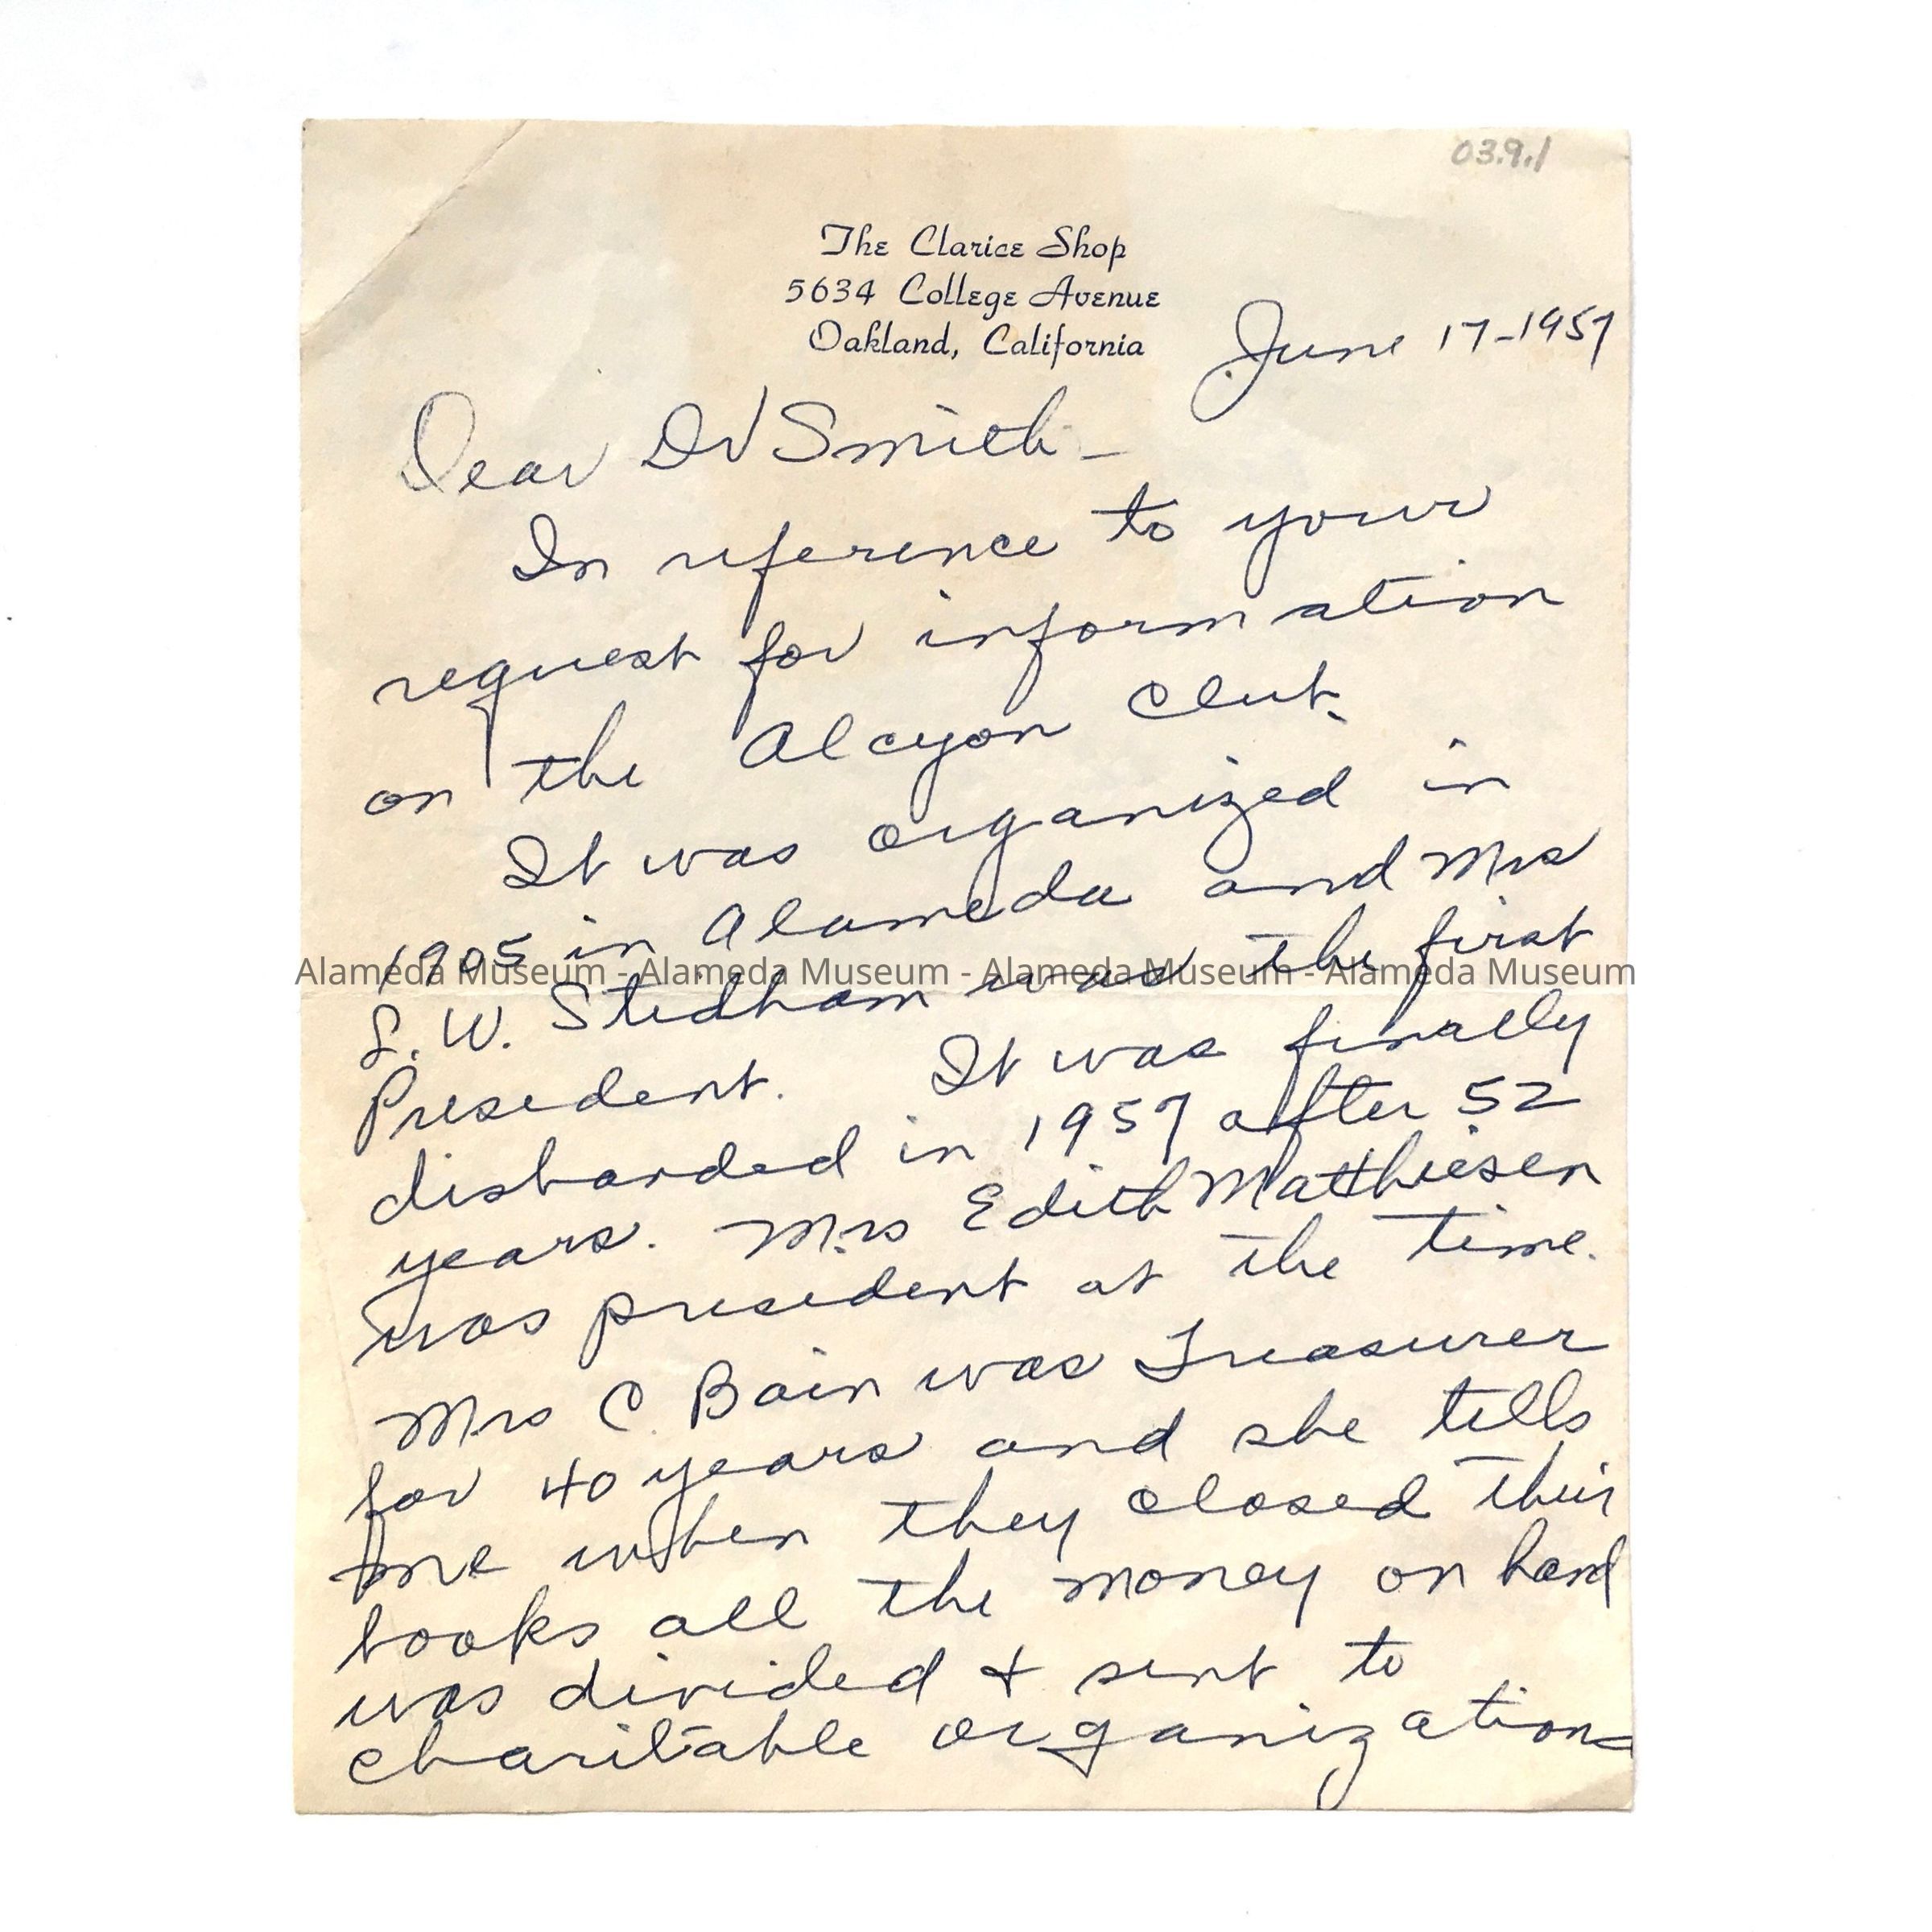 03.9.1
The Clarice Shop
5634 College Avenue
Oakland, California
June 17-1957
Dear Dr Smith-
In reference to your
request for information
on the Alcyon Club.
It was organized in
1905 in Alameda and Mrs
Alameda Museum - Alameda Museum - Alameda Museum - Alameda Museum
S. W. Stedham was the first
President. It was finally
disbanded in 1957 after 52
years. Mrs Edith Matthiesen
was president at the time.
Mrs C. Bain was Treasurer
for 40 years and she tells
me when they closed their
books all the money on hand
was divided + sent to
charitable organizations